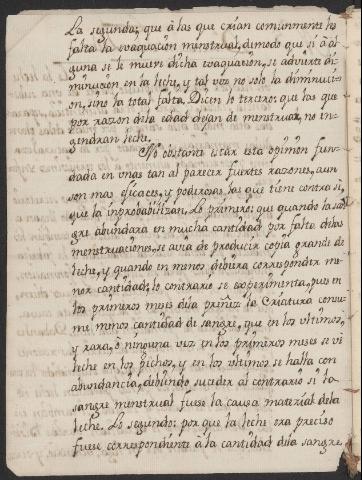 La segunda; que à las que crian comunmente les
falta la evaquacion menstrual, demodo que si à al
guna se le mueve dicha evaquacion, se advierte di-
minucion en la leche, y tal vez no solo la diminuci-
on, sino la total falta. Dicen lo tercero: que las que
por razon dela edad dejan de menstruar, no in-
gendran leche.
No obstante estàr esta opinion fun-
dada en unas tan al parecer fuertes razones, aun
son mas eficaces, y poderosas, las que tiene contra sì,
que la inprobabilizan. Lo primero; que quando la san
gre abundara en mucha cantidad por falta delas
menstruaciones, se avia de producir copia grande de
leche, y quando en menos debiera corresponder me
nor cantidad; lo contrario se experimenta, pues en
los primeros meses dela preñez la Criatura consu
me menos cantidad de sangre, que en los ultimos,
y rara, ò ninguna vez en los primeros meses se vè
leche en los pechos, y en los ultimos se halla con
abundancia, debiendo suceder al contrario si la
sangre menstrual fuese la causa material dela
leche. Lo segundo: por que la leche era preciso
fuese correspondiente à la cantidad dela sangre